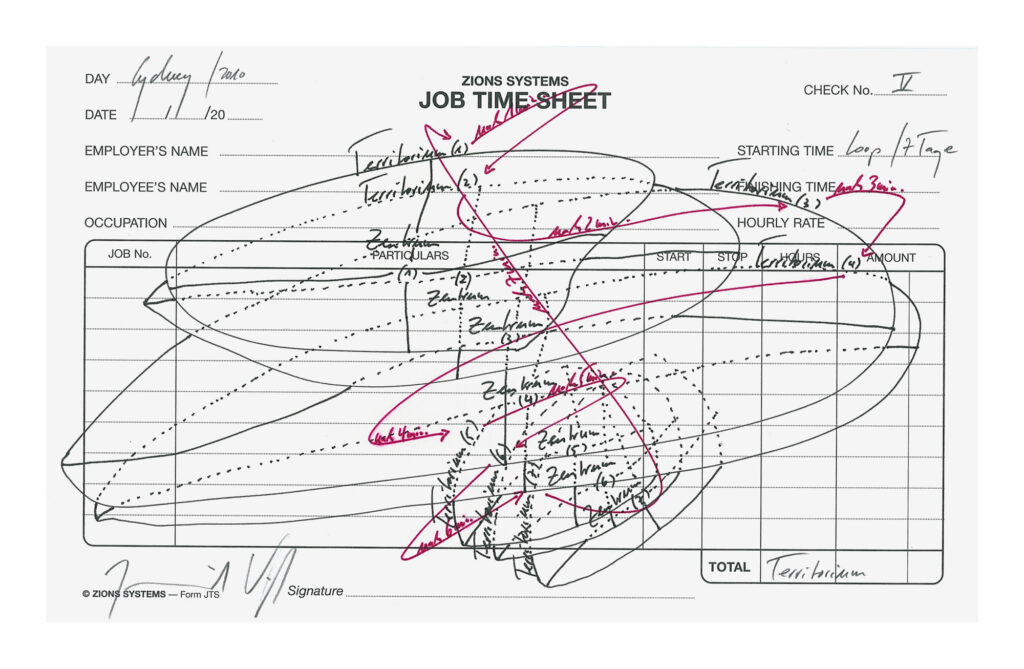 ZIONS SYSTEMS
JOB TIME SHEET
DAY Sydney / 2010
CHECK No. IV
DATE / / 20
EMPLOYER'S NAME
STARTING TIME Loop / 7 Tage
EMPLOYEE'S NAME
FINISHING TIME
OCCUPATION
HOURLY RATE
nach 1 min.
Territorium (1)
Territorium (2)
Territorium (3)
nach 3 min.
nach 2 min.
JOB No.
PARTICULARS
START
STOP
HOURS
AMOUNT
Zentrum (1)
Territorium (4)
(2) Zentrum
nach 7 min.
Zentrum (3)
Zentrum (4)
nach 5 min.
nach 4 min.
Zentrum (5)
Zentrum (6)
Zentrum (7)
Territorium (5)
Territorium (6)
Territorium (7)
nach 6 min.
TOTAL Territorium
© ZIONS SYSTEMS — Form JTS
Signature